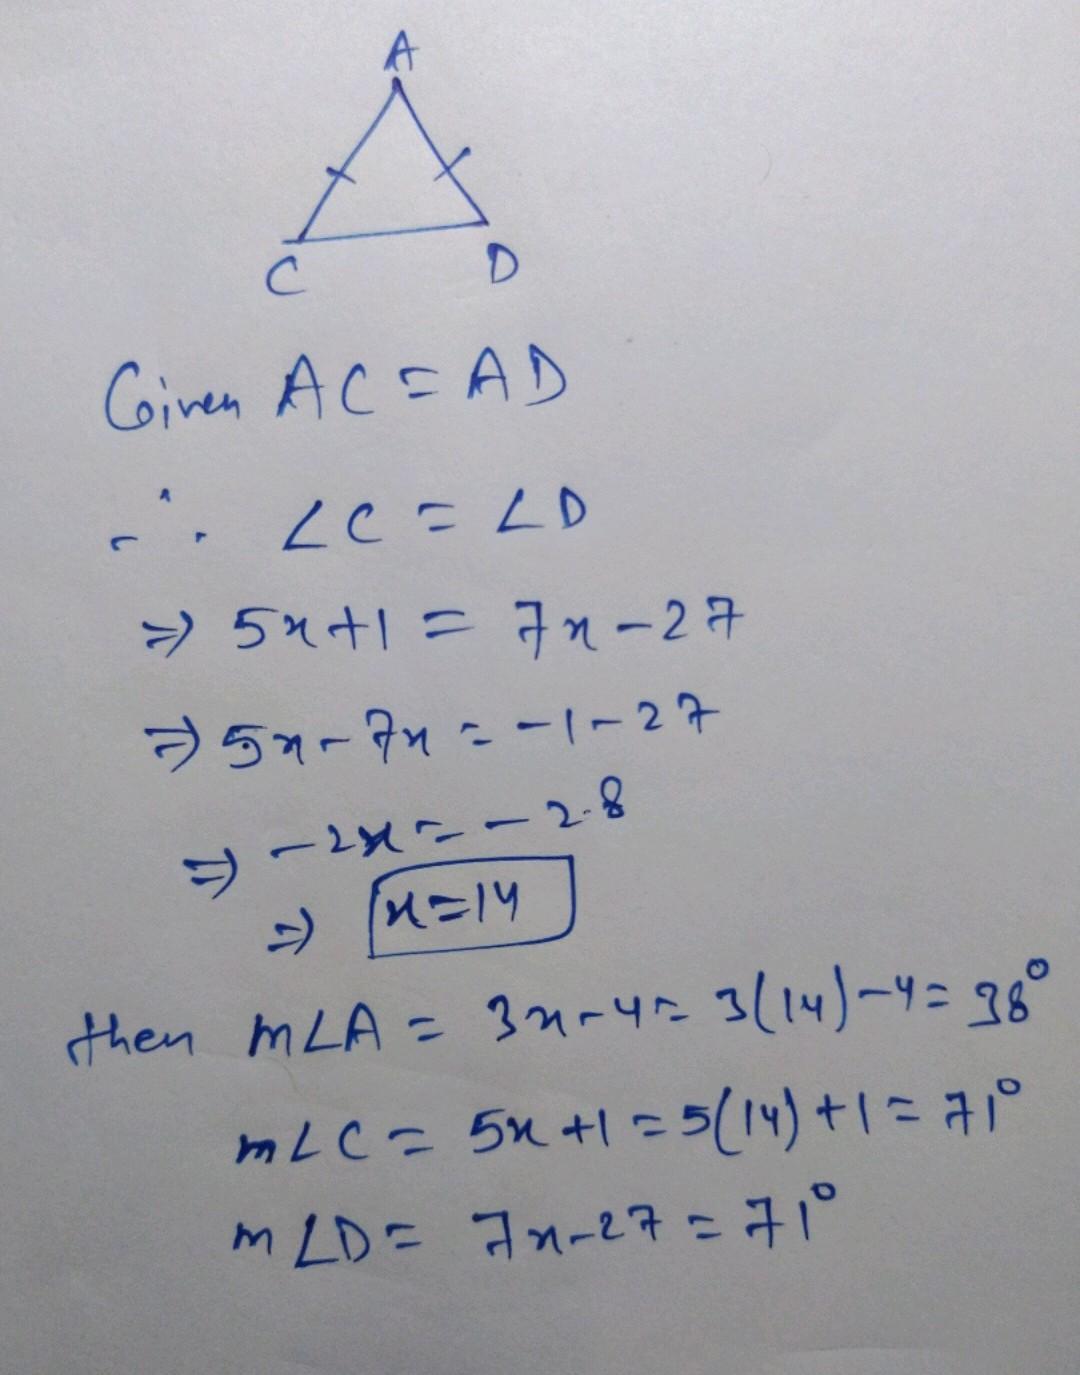 A
C D
Given AC = AD
∴ ∠C = ∠D
⇒ 5x+1 = 7x-27
⇒ 5x-7x = -1-27
⇒ -2x = -28
⇒ x=14
then m∠A = 3x-4 = 3(14)-4 = 38°
m∠C = 5x+1 = 5(14)+1 = 71°
m∠D = 7x-27 = 71°